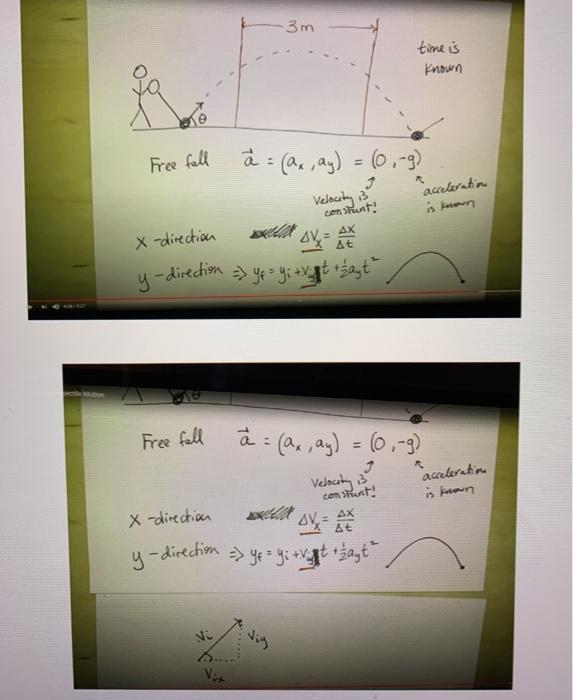 3m
time is
known
θ
Free fall a⃗ = (aₓ, a_y) = (0, -g)
Velocity is
constant!
acceleration
is known
x-direction ΔVₓ = Δx/Δt
y-direction ⇒ y_f = y_i + v_y t + ½a_y t²
θ
Free fall a⃗ = (aₓ, a_y) = (0, -g)
Velocity is
constant!
acceleration
is known
x-direction ΔVₓ = Δx/Δt
y-direction ⇒ y_f = y_i + v_y t + ½a_y t²
Vi
Viy
Vix